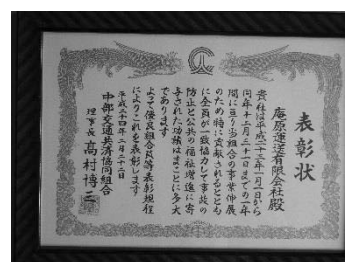 表彰状
庵原運送有限会社殿
貴社は平成二十三年一月一日から
同年十二月三十一日までの一年
間に亘り当組合の事業伸展
のため特に貢献されるととも
に全員が一致協力して事故の
防止と公共の福祉増進に寄
与された功績はまことに多大
であります
よって優良組合員等表彰規程
によりこれを表彰します
平成二十四年二月二十二日
中部交通共済協同組合
理事長 高村博三